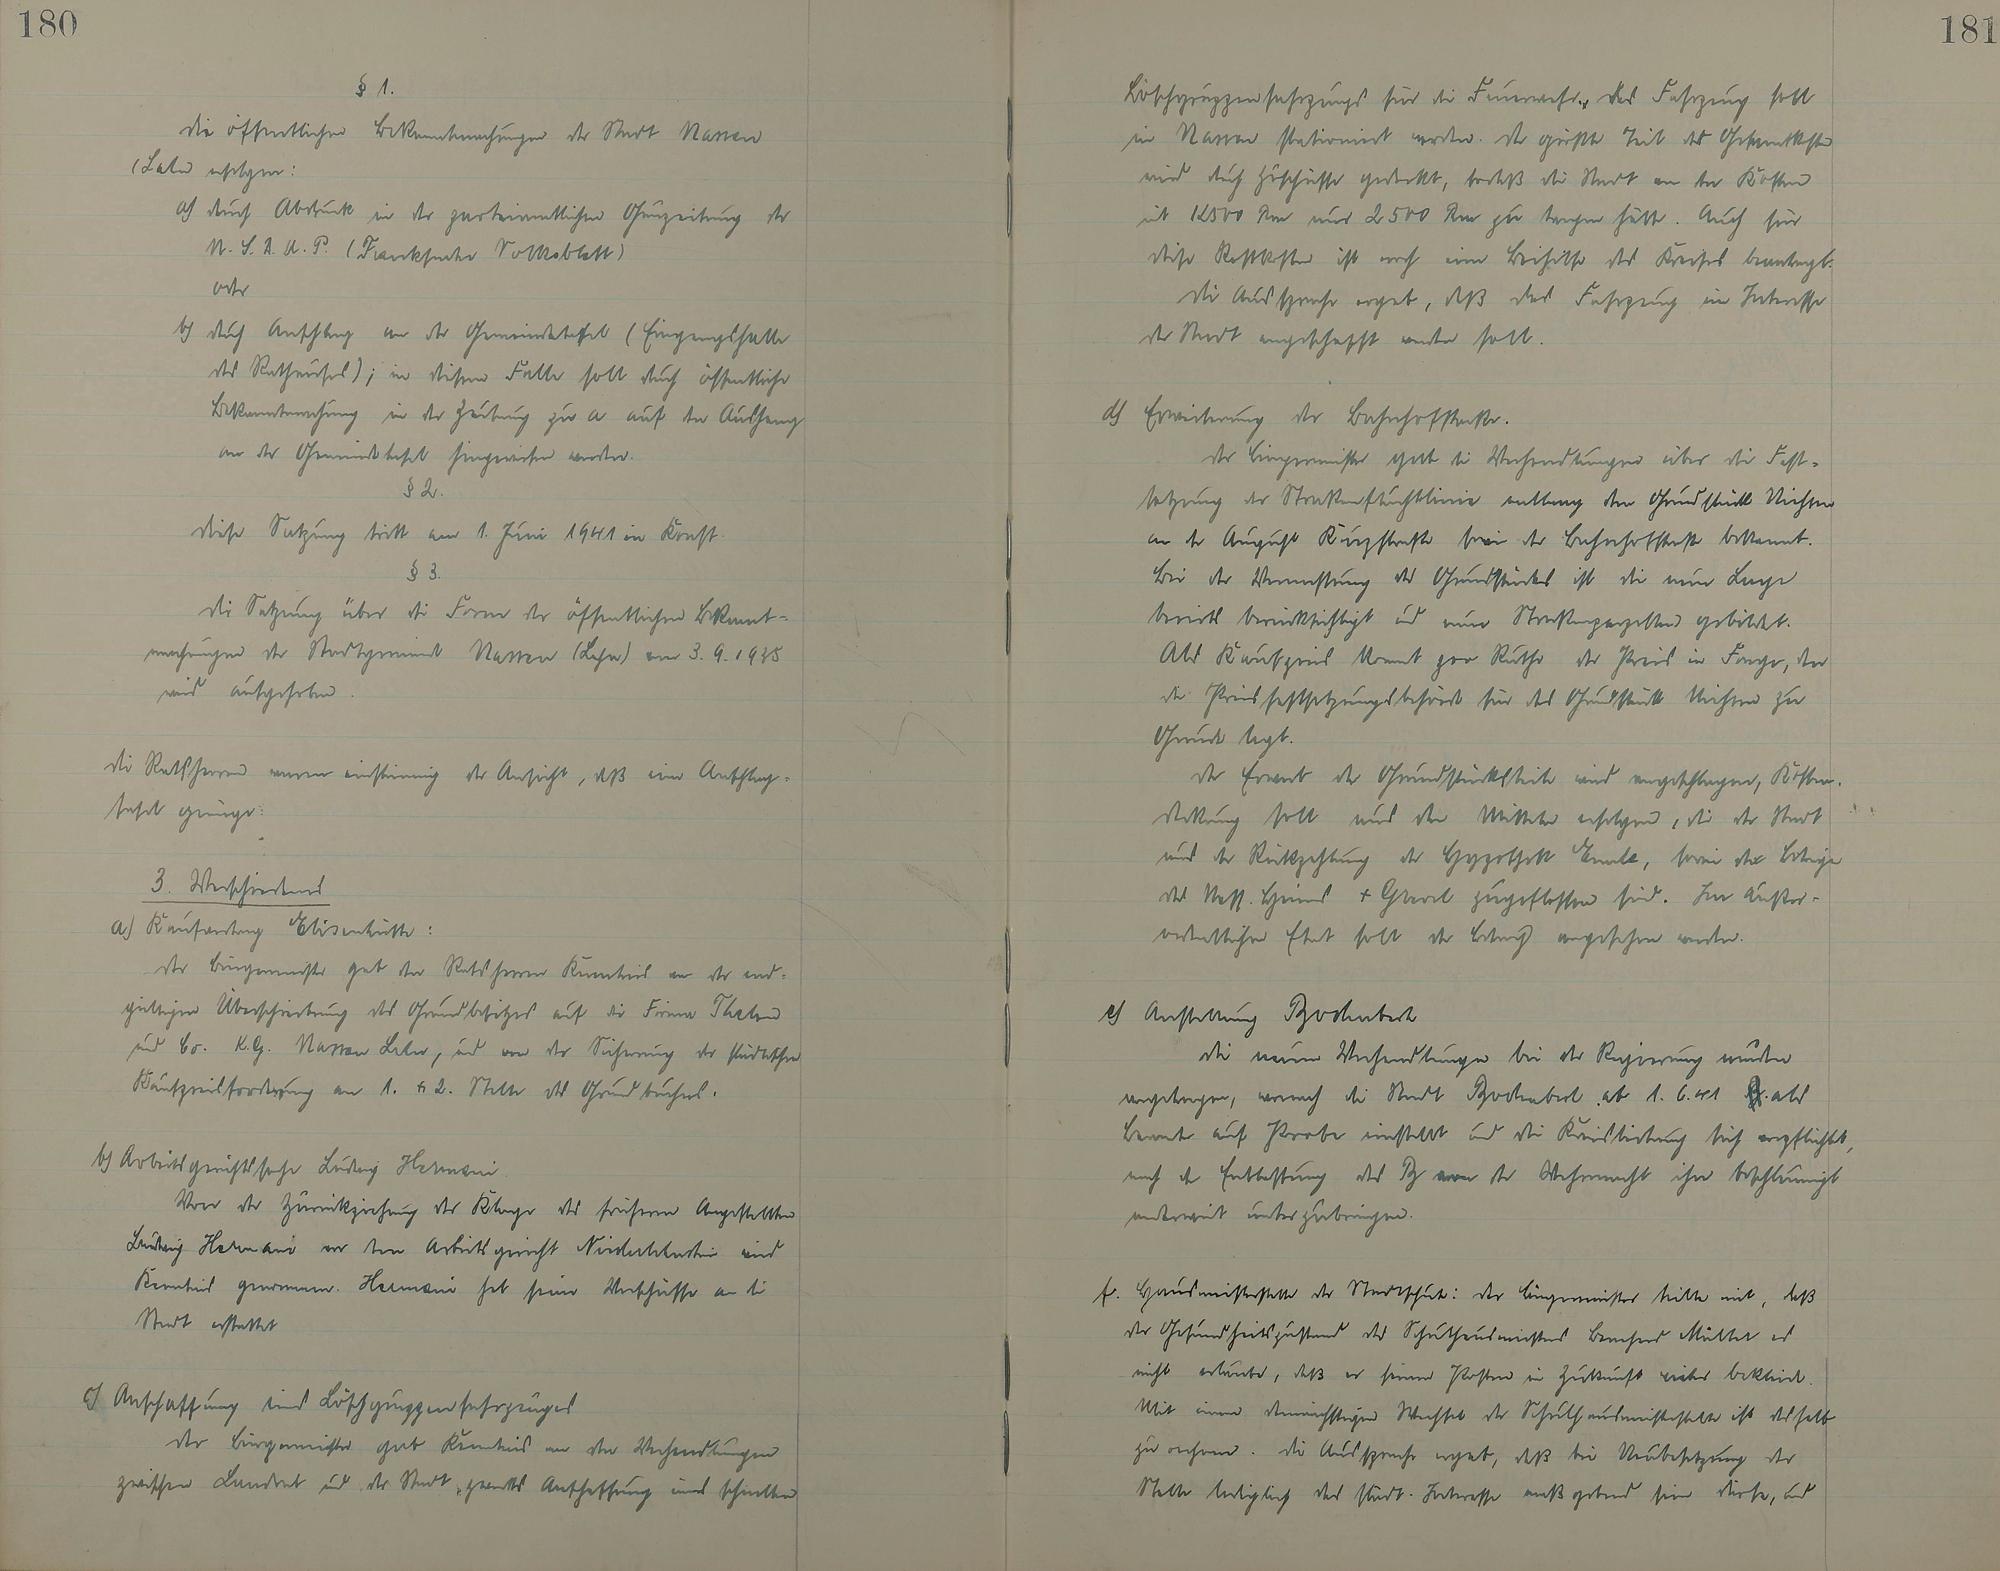 180
§ 1.
Die öffentlichen Bekanntmachungen der Stadt Nassau
(Lahn erfolgen:
a) durch Abdruck in der parteiamtlichen Gauzeitung der
N.S.D.A.P. (Frankfurter Volksblatt)
oder
b) durch Anschlag an der Gemeindetafel (Eingangshalle
des Rathauses); in diesem Falle soll durch öffentliche
Bekanntmachung in der Zeitung zu a auf den Aushang
an der Gemeindetafel hingewiesen werden.
§ 2.
Diese Satzung tritt am 1. Juni 1941 in Kraft.
§ 3.
Die Satzung über die Form der öffentlichen Bekannt-
machungen der Stadtgemeinde Nassau (Lahn) vom 3.9.1935
wird aufgehoben.
Die Ratsherren waren einstimmig der Ansicht, daß eine Anschlag-
tafel genüge.
3. Verschiedenes
a) Kaufvertrag Elisenhütte:
Der Bürgermeister gab den Ratsherren Kenntnis von der end-
gültigen Überschreibung des Grundbesitzes auf die Firma
und Co. K.G. Nassau Lahn, und von der Sicherung der städtischen
Kaufpreisforderung an 1. & 2. Stelle des Grundbuches.
b) Arbeitsgerichtssache Ludwig Hermani
Von der Zurückziehung der Klage des früheren Angestellten
Ludwig Hermani vor dem Arbeitsgericht Niederlahnstein wird
Kenntnis genommen. Hermani hat seine Vorschüsse an die
Stadt erstattet
c) Anschaffung eines Löschgruppenfahrzeuges
Der Bürgermeister gab Kenntnis von den Verhandlungen
zwischen Landrat und der Stadt, zwecks Anschaffung eines schnellen
181
Löschgruppenfahrzeugs für die Feuerwehr. Das Fahrzeug soll
in Nassau stationiert werden. Der größte Teil der Gesamtkosten
wird durch Zuschüsse gedeckt, sodaß die Stadt an den Kosten
mit 12500 Rm nur 2500 Rm zu tragen hätte. Auch für
diese Restkosten ist noch eine Beihilfe des Kreises beantragt.
Die Aussprache ergab, daß das Fahrzeug im Interesse
der Stadt angeschafft werden soll.
d) Erweiterung der Bahnhofstraße.
Der Bürgermeister gab die Verhandlungen über die Fest-
setzung der Straßenfluchtlinie entlang dem Grundstück
an der August straße sowie der Bahnhofstraße bekannt.
Bei der Vermessung des Grundstückes ist die neue Lage
bereits berücksichtigt und neue Straßenparzellen gebildet.
Als Kaufpreis kommt pro Ruthe der Preis in Frage, den
die Preisfestsetzungsbehörde für das Grundstück zu
Grunde legt.
Der Erwerb der Grundstücksteile wird vorgeschlagen, Kosten-
deckung soll aus den Mitteln erfolgen, die der Stadt
aus der Rückzahlung der Hypothek, sowie der Beträge
der zugeflossen sind. Im außer-
ordentlichen Etat soll der Betrag vorgesehen werden.
e) Anstellung
Die neuen Verhandlungen bei der Regierung wurden
vorgetragen, wonach die Stadt ab 1.6.41 als
Beamter auf Probe einstellt und die Kreisleitung sich verpflichtet,
nach der Entlassung des von der Wehrmacht ihn beschleunigt
anderweit unterzubringen.
f. Hausmeisterstelle der Stadtschule: Der Bürgermeister teilte mit, daß
der Gesundheitszustand des Schulhausmeisters Bernhard Müller es
nicht erlaube, daß er seinen Posten in Zukunft weiter bekleide.
Mit einem demnächstigen Wechsel der Schulhausmeisterstelle ist deshalb
zu rechnen. Die Aussprache ergab, daß bei Neubesetzung der
Stelle lediglich das städt. Interesse maßgebend sein dürfe, und